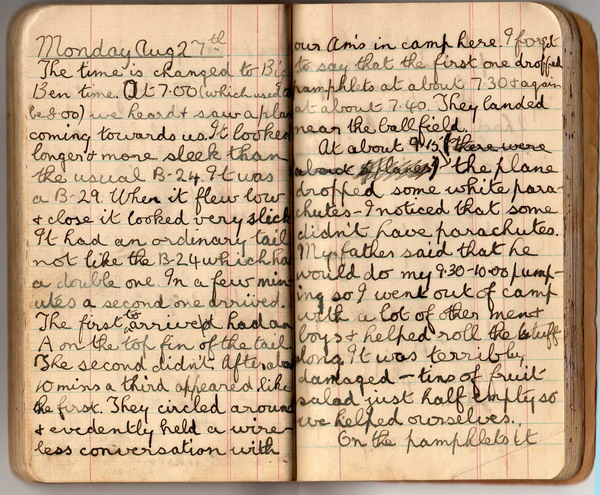 Monday Aug 27th
The time is changed to Big
Ben time. At 7.00 (which used to
be 8.00) we heard & saw a plane
coming towards us. It looked
longer & more sleek than
the usual B-24. It was
a B-29. When it flew low
& close it looked very slick
It had an ordinary tail
not like the B-24 which has
a double one. In a few min
utes a second one arrived.
The first to arrived had an
A on the top fin of the tail
The second didn't. After about
10 mins a third appeared like
the first. They circled around
& evedently held a wire-
less conversation with
our Am's in camp here. I forgot
to say that the first one dropped
pamphlets at about 7.30 & again
at about 7.40. They landed
near the ballfield.
At about 9.15 (there were
about planes) the plane
dropped some white para-
chutes - I noticed that some
didn't have parachutes.
My father said that he
would do my 9.30-10.00 pump-
ing so I went out of camp
with a lot of other men &
boys & helped roll the stuff
along. It was terribly
damaged - tins of fruit
salad just half empty so
we helped ourselves.
On the pamphlets it